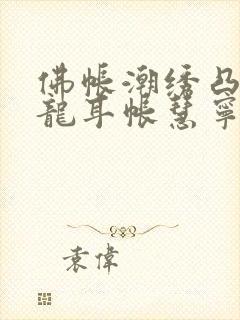 佛帐潮绣凸
龍耳帐慧寧
袁偉